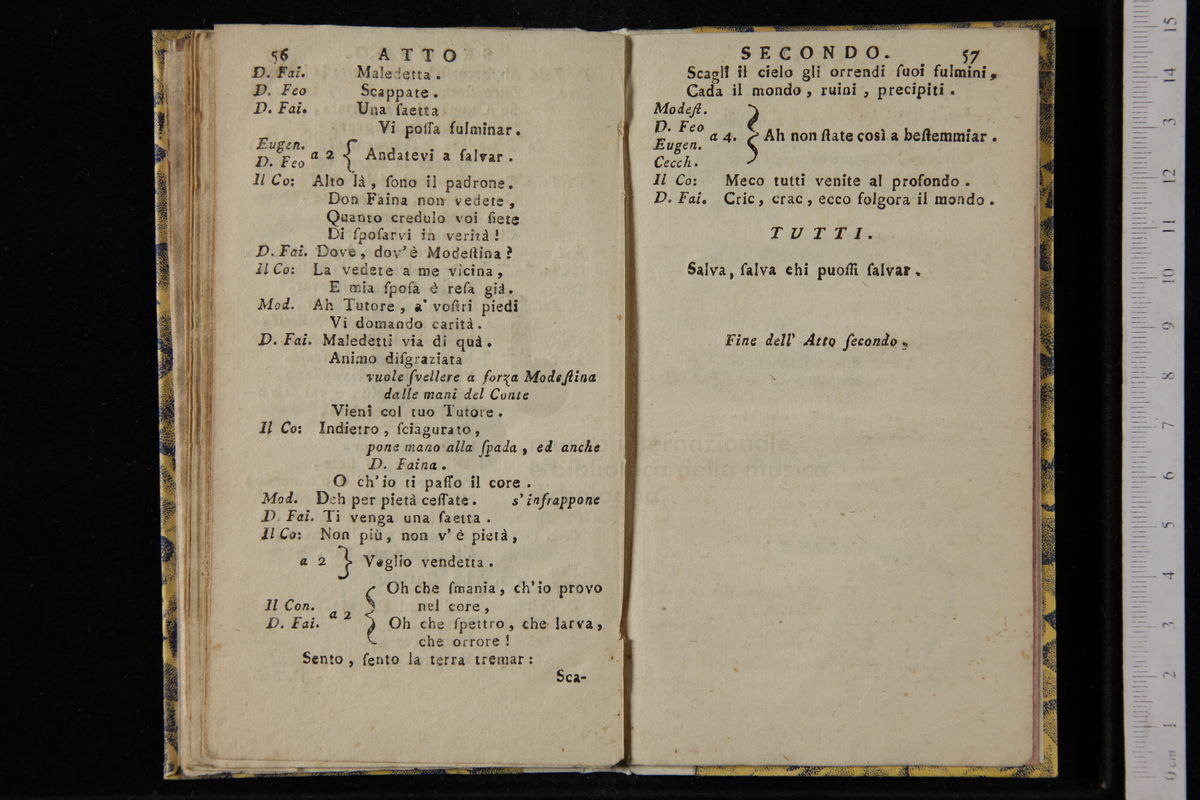 56 ATTO
D. Fai. Maledetta.
D. Feo Scappate.
D. Fai. Una ſaetta
Vi poſſa fulminar.
Eugen.
D. Feo a 2 { Andatevi a ſalvar.
Il Co: Alto là, ſono il padrone.
Don Faina non vedete,
Quanto credulo voi ſiete
Di ſpoſarvi in verità!
D. Fai. Dove, dov'è Modeſtina?
Il Co: La vedete a me vicina,
E mia ſpoſa è reſa già.
Mod. Ah Tutore, a' voſtri piedi
Vi domando carità.
D. Fai. Maledetti via di quà.
Animo diſgraziata
vuole ſvellere a forza Modeſtina
dalle mani del Conte
Vieni col tuo Tutore.
Il Co: Indietro, ſciagurato,
pone mano alla ſpada, ed anche
D. Faina.
O ch'io ti paſſo il core.
Mod. Deh per pietà ceſſate. s'infrappone
D. Fai. Ti venga una ſaetta.
Il Co: Non più, non v'è pietà,
a 2 } Voglio vendetta.
Oh che ſmania, ch'io provo
Il Con. nel core,
D. Fai. a 2 { Oh che ſpettro, che larva,
che orrore!
Sento, ſento la terra tremar:
Sca-
SECONDO. 57
Scagli il cielo gli orrendi ſuoi fulmini,
Cada il mondo, ruini, precipiti.
Modeſt.
D. Feo
Eugen. a 4. } Ah non ſtate così a beſtemmiar.
Cecch.
Il Co: Meco tutti venite al profondo.
D. Fai. Cric, crac, ecco folgora il mondo.
TUTTI.
Salva, ſalva chi puoſſi ſalvar.
Fine dell' Atto ſecondo.
internazionale
e biblioteca della musica
15
14
3
12
11
10
9
8
7
6
5
4
3
2
1
0 cm